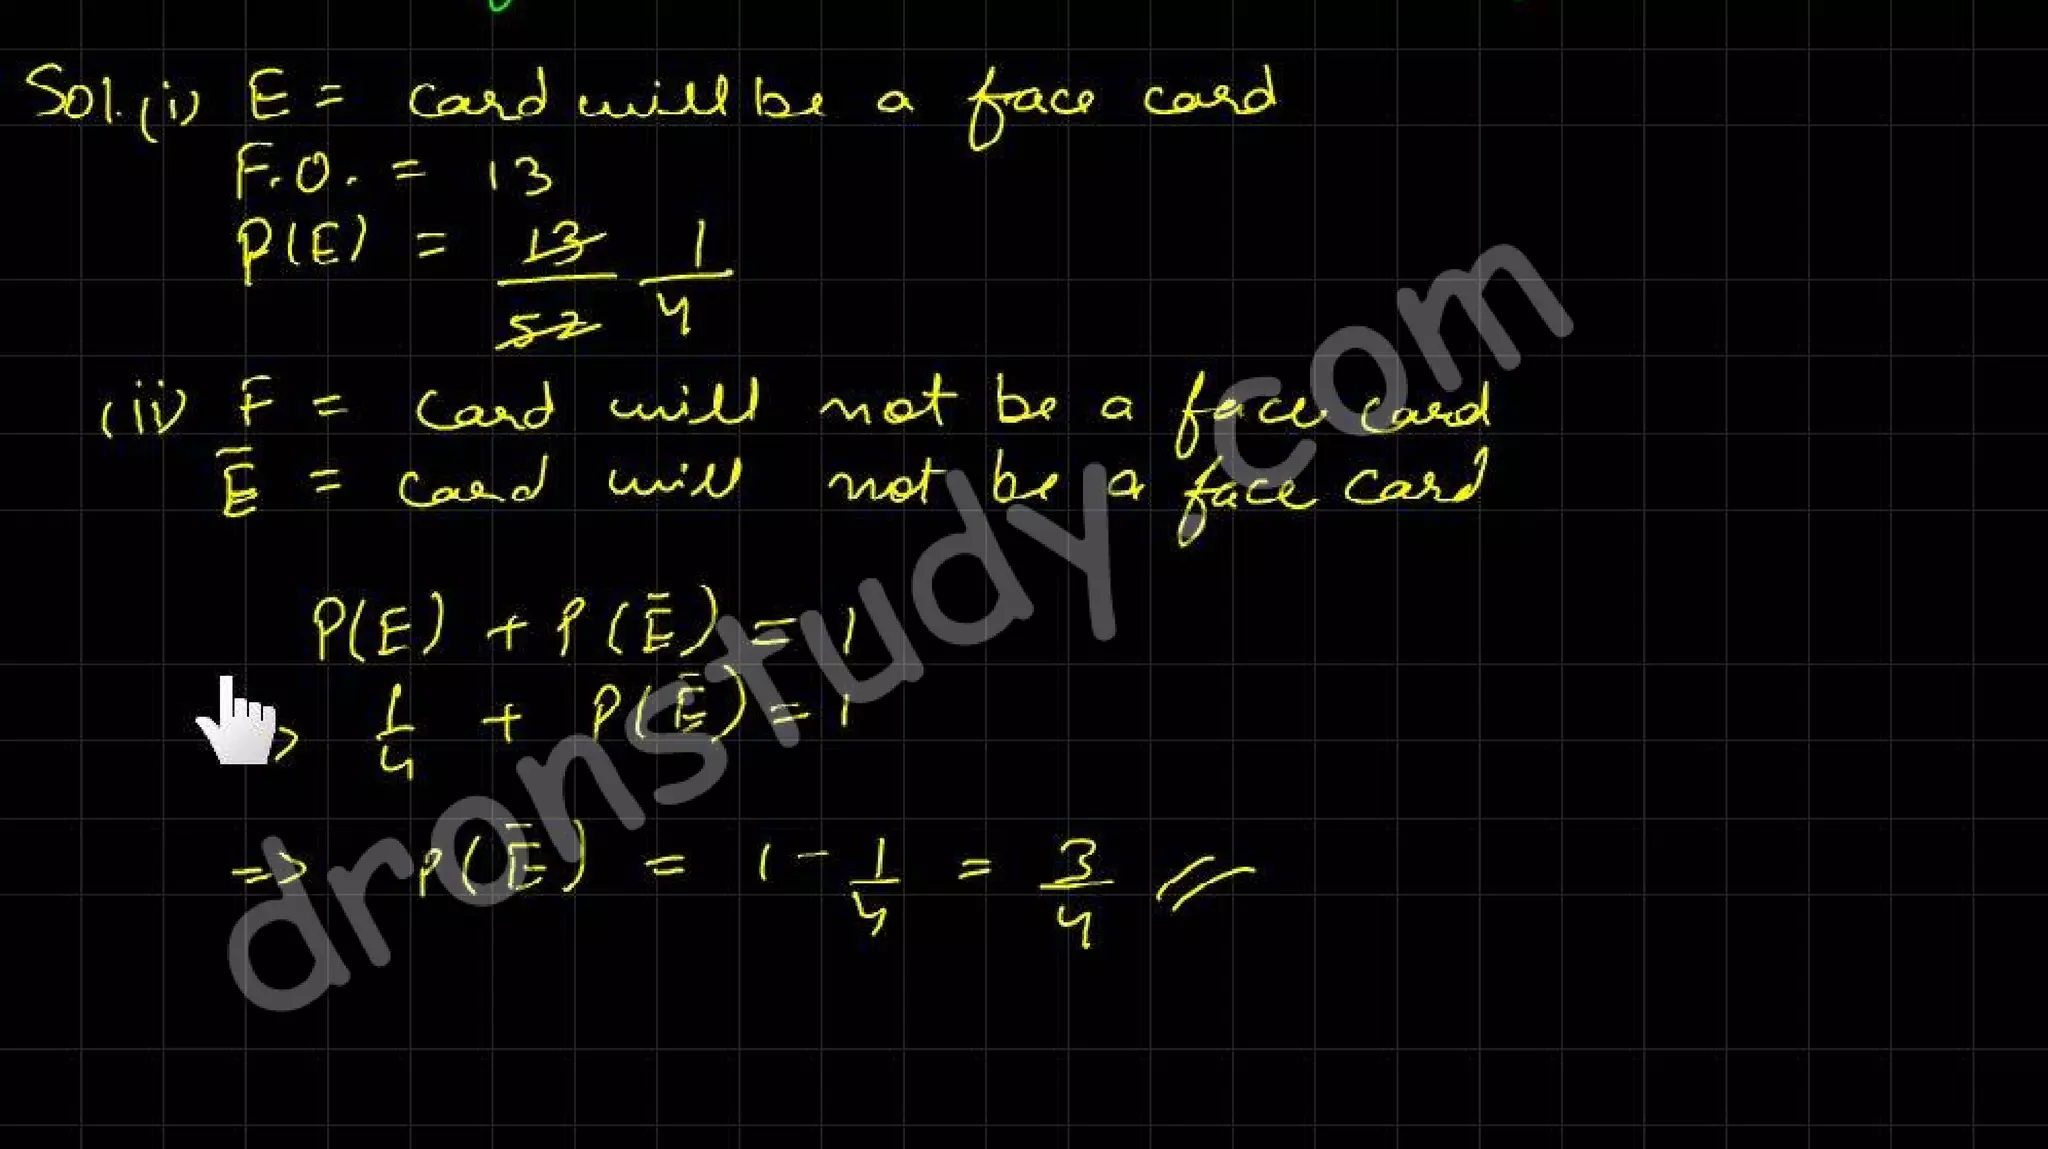 Sol. (i) E = card will be a face card
F.O. = 13
P(E) = 13/52 1/4
(ii) F = card will not be a face card
Ē = card will not be a face card
P(E) + P(Ē) = 1
=> 1/4 + P(Ē) = 1
=> P(Ē) = 1 - 1/4 = 3/4
dronstudy.com